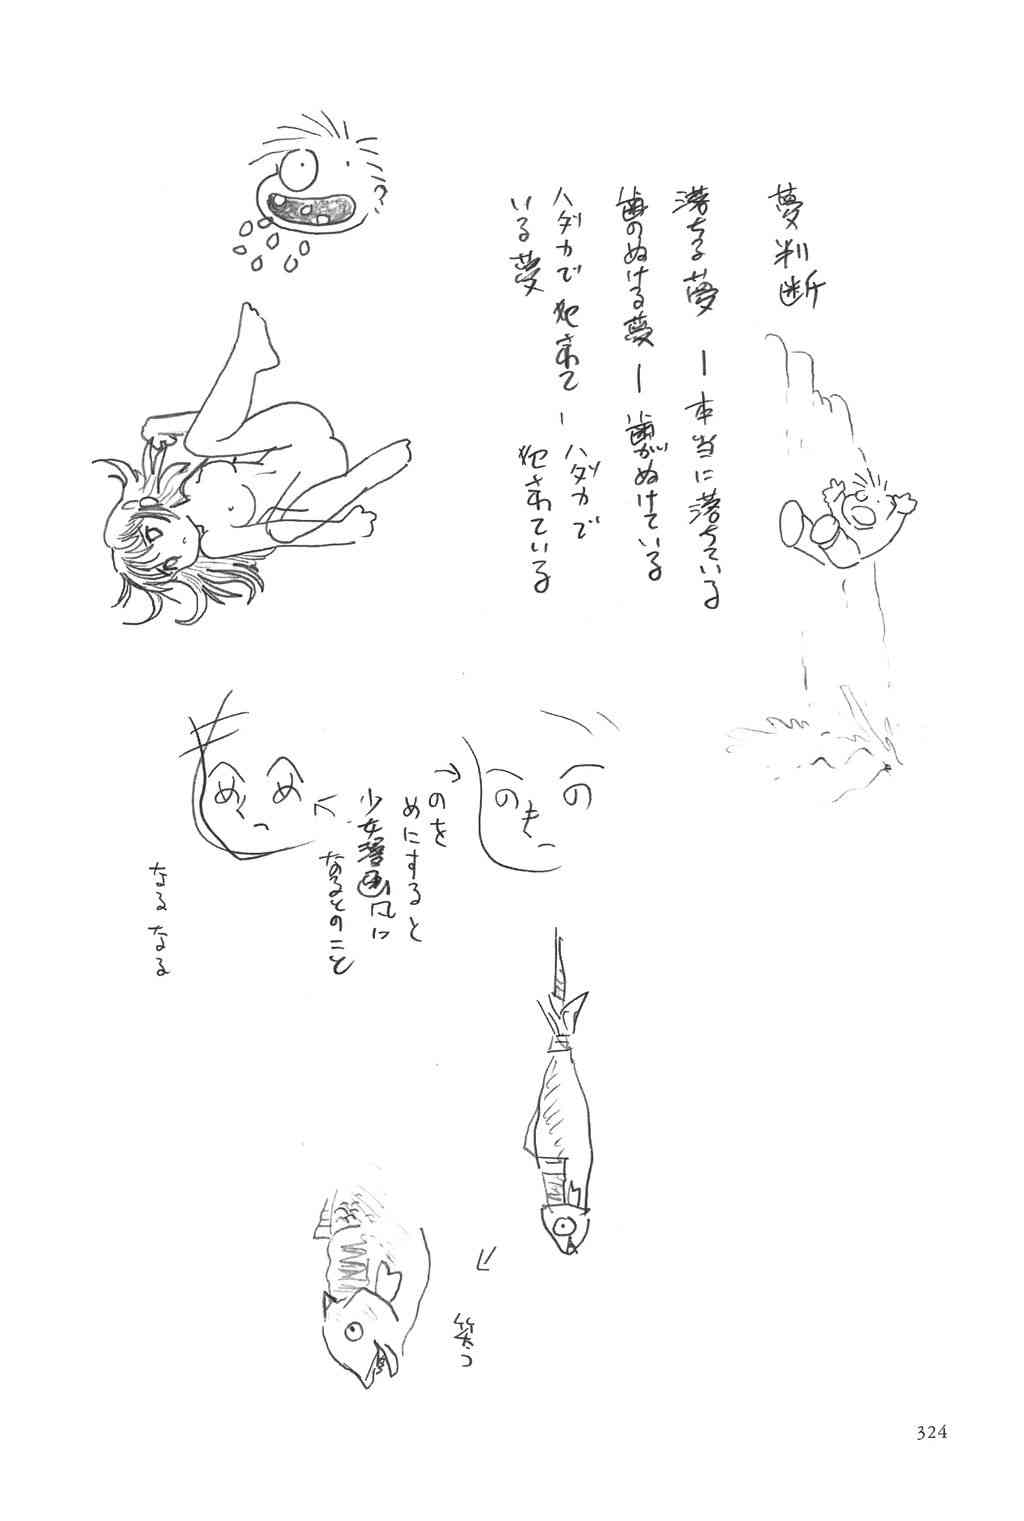 夢判断
落ちる夢 ー 本当に落ちている
歯のぬける夢 ー 歯がぬけている
ハダカで犯されて
いる夢
ー ハダカで
犯されている
のの
も
く
のを
めにすると
少女漫画風に
なるとのこと
めめ
く
なるなる
笑う
324